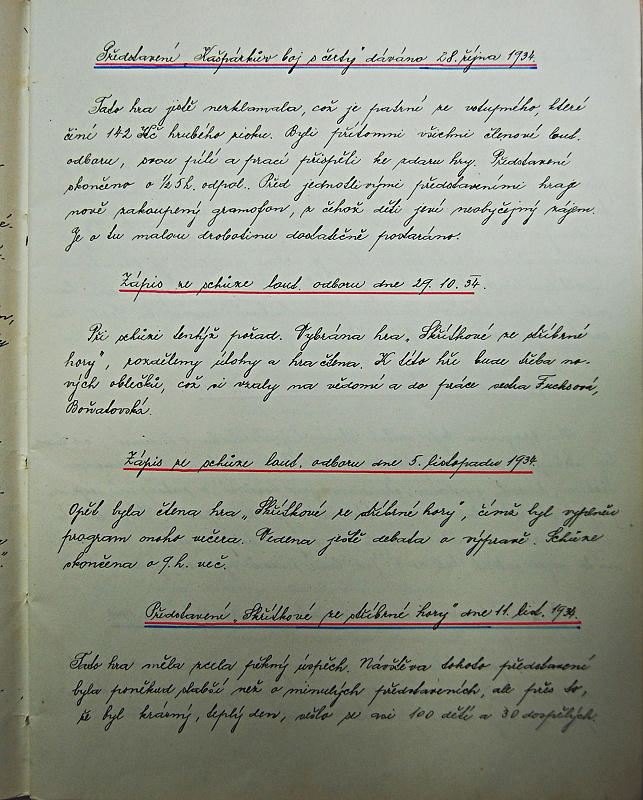 Představení „Kašpárkův boj s čerty" dáváno 28. října 1934.
Tato hra jistě nezklamala, což je patrné ze vstupného, které
činí 142 Kč hrubého zisku. Byli přítomni všichni členové lout.
odboru, svou pílí a prací přispěli ke zdaru hry. Představení
skončeno o ½ 5 h. odpol.. Před jednotlivými představeními hraje
nově zakoupený gramofon, z čehož děti jeví neobyčejný zájem.
Je o tu malou drobotinu dostatečně postaráno.
Zápis ze schůze lout. odboru dne 29. 10. 34.
Při schůzi tentýž pořad. Vybrána hra „Skřítkové ze stříbrné
hory", rozděleny úlohy a hra čtena. K této hře bude třeba no-
vých oblečků, což si vzaly na vědomí a do práce sestra Fuchsová,
Boňatovská.
Zápis ze schůze lout. odboru dne 5. listopadu 1934.
Opět byla čtena hra „Skřítkové ze stříbrné hory", čímž byl vyplněn
program onoho večera. Vedena ještě debata o výpravě. Schůze
skončena o 9. h. več.
Představení „Skřítkové ze stříbrné hory" dne 11. list. 1934.
Tato hra měla zcela pěkný úspěch. Návštěva tohoto představení
byla poněkud slabší než o minulých představeních, ale přes to,
že byl krásný, teplý den, sešlo se asi 100 dětí a 30 dospělých.